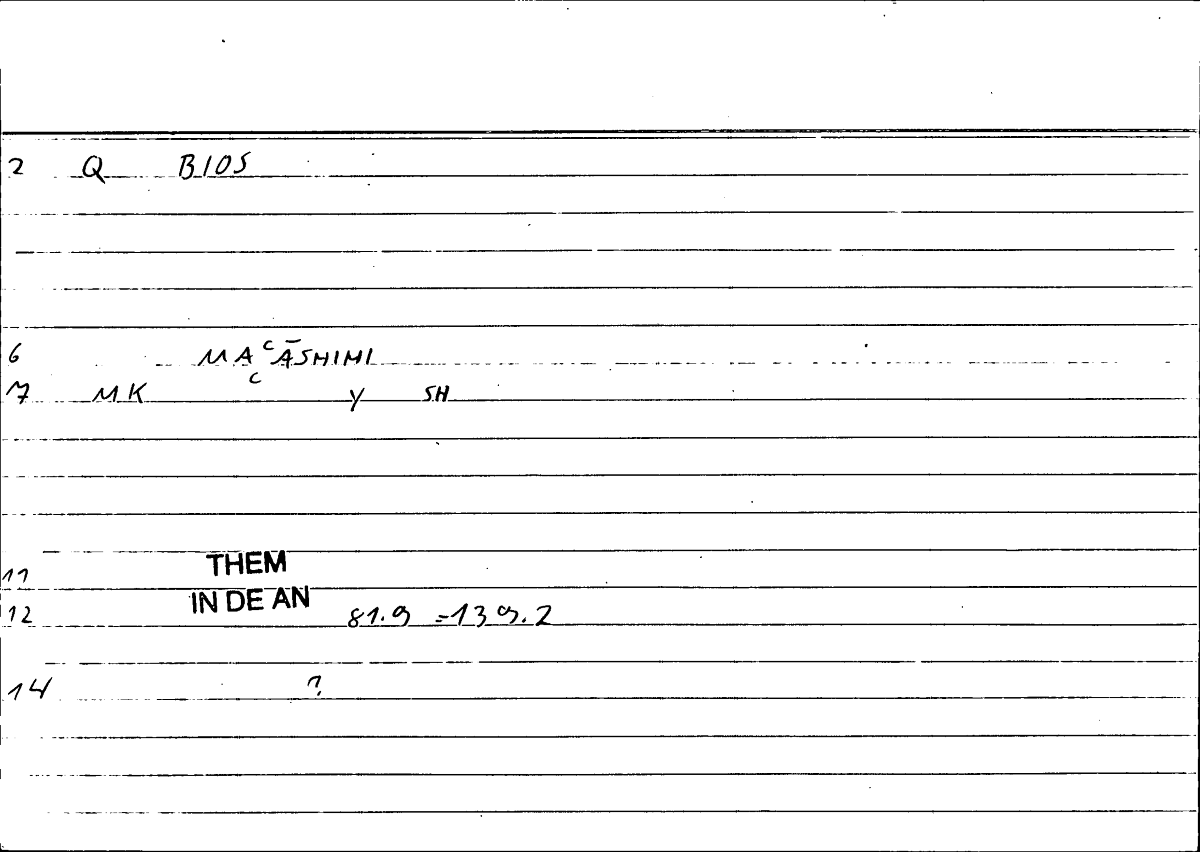 2 Q BIOS
6 MAᶜĀSHIHI
7 MK c Y SH
11 THEM
12 IN DE AN 81.9 = 139.2
14 ?